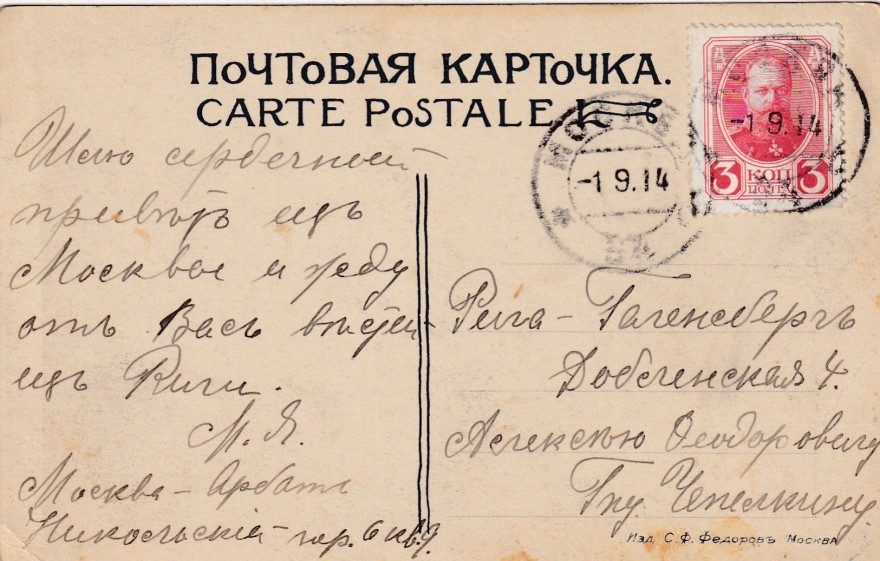 ПОЧТОВАЯ КАРТОЧКА.
CARTE POSTALE
МОСКВА
-1 9.14
-1 9.14
3 КОП 3
Шлю сердечный
привѣтъ изъ
Москвы и жду
отъ Васъ вѣстей
изъ Риги.
М. Я.
Москва - Арбатъ
Никольскій пер. 6 кв. 9.
Рига - Гагенсбергъ
Добленская 4.
Алексѣю Ѳеодоровичу
Гну Чепелкину
Изд. С. Ф. Федоровъ Москва